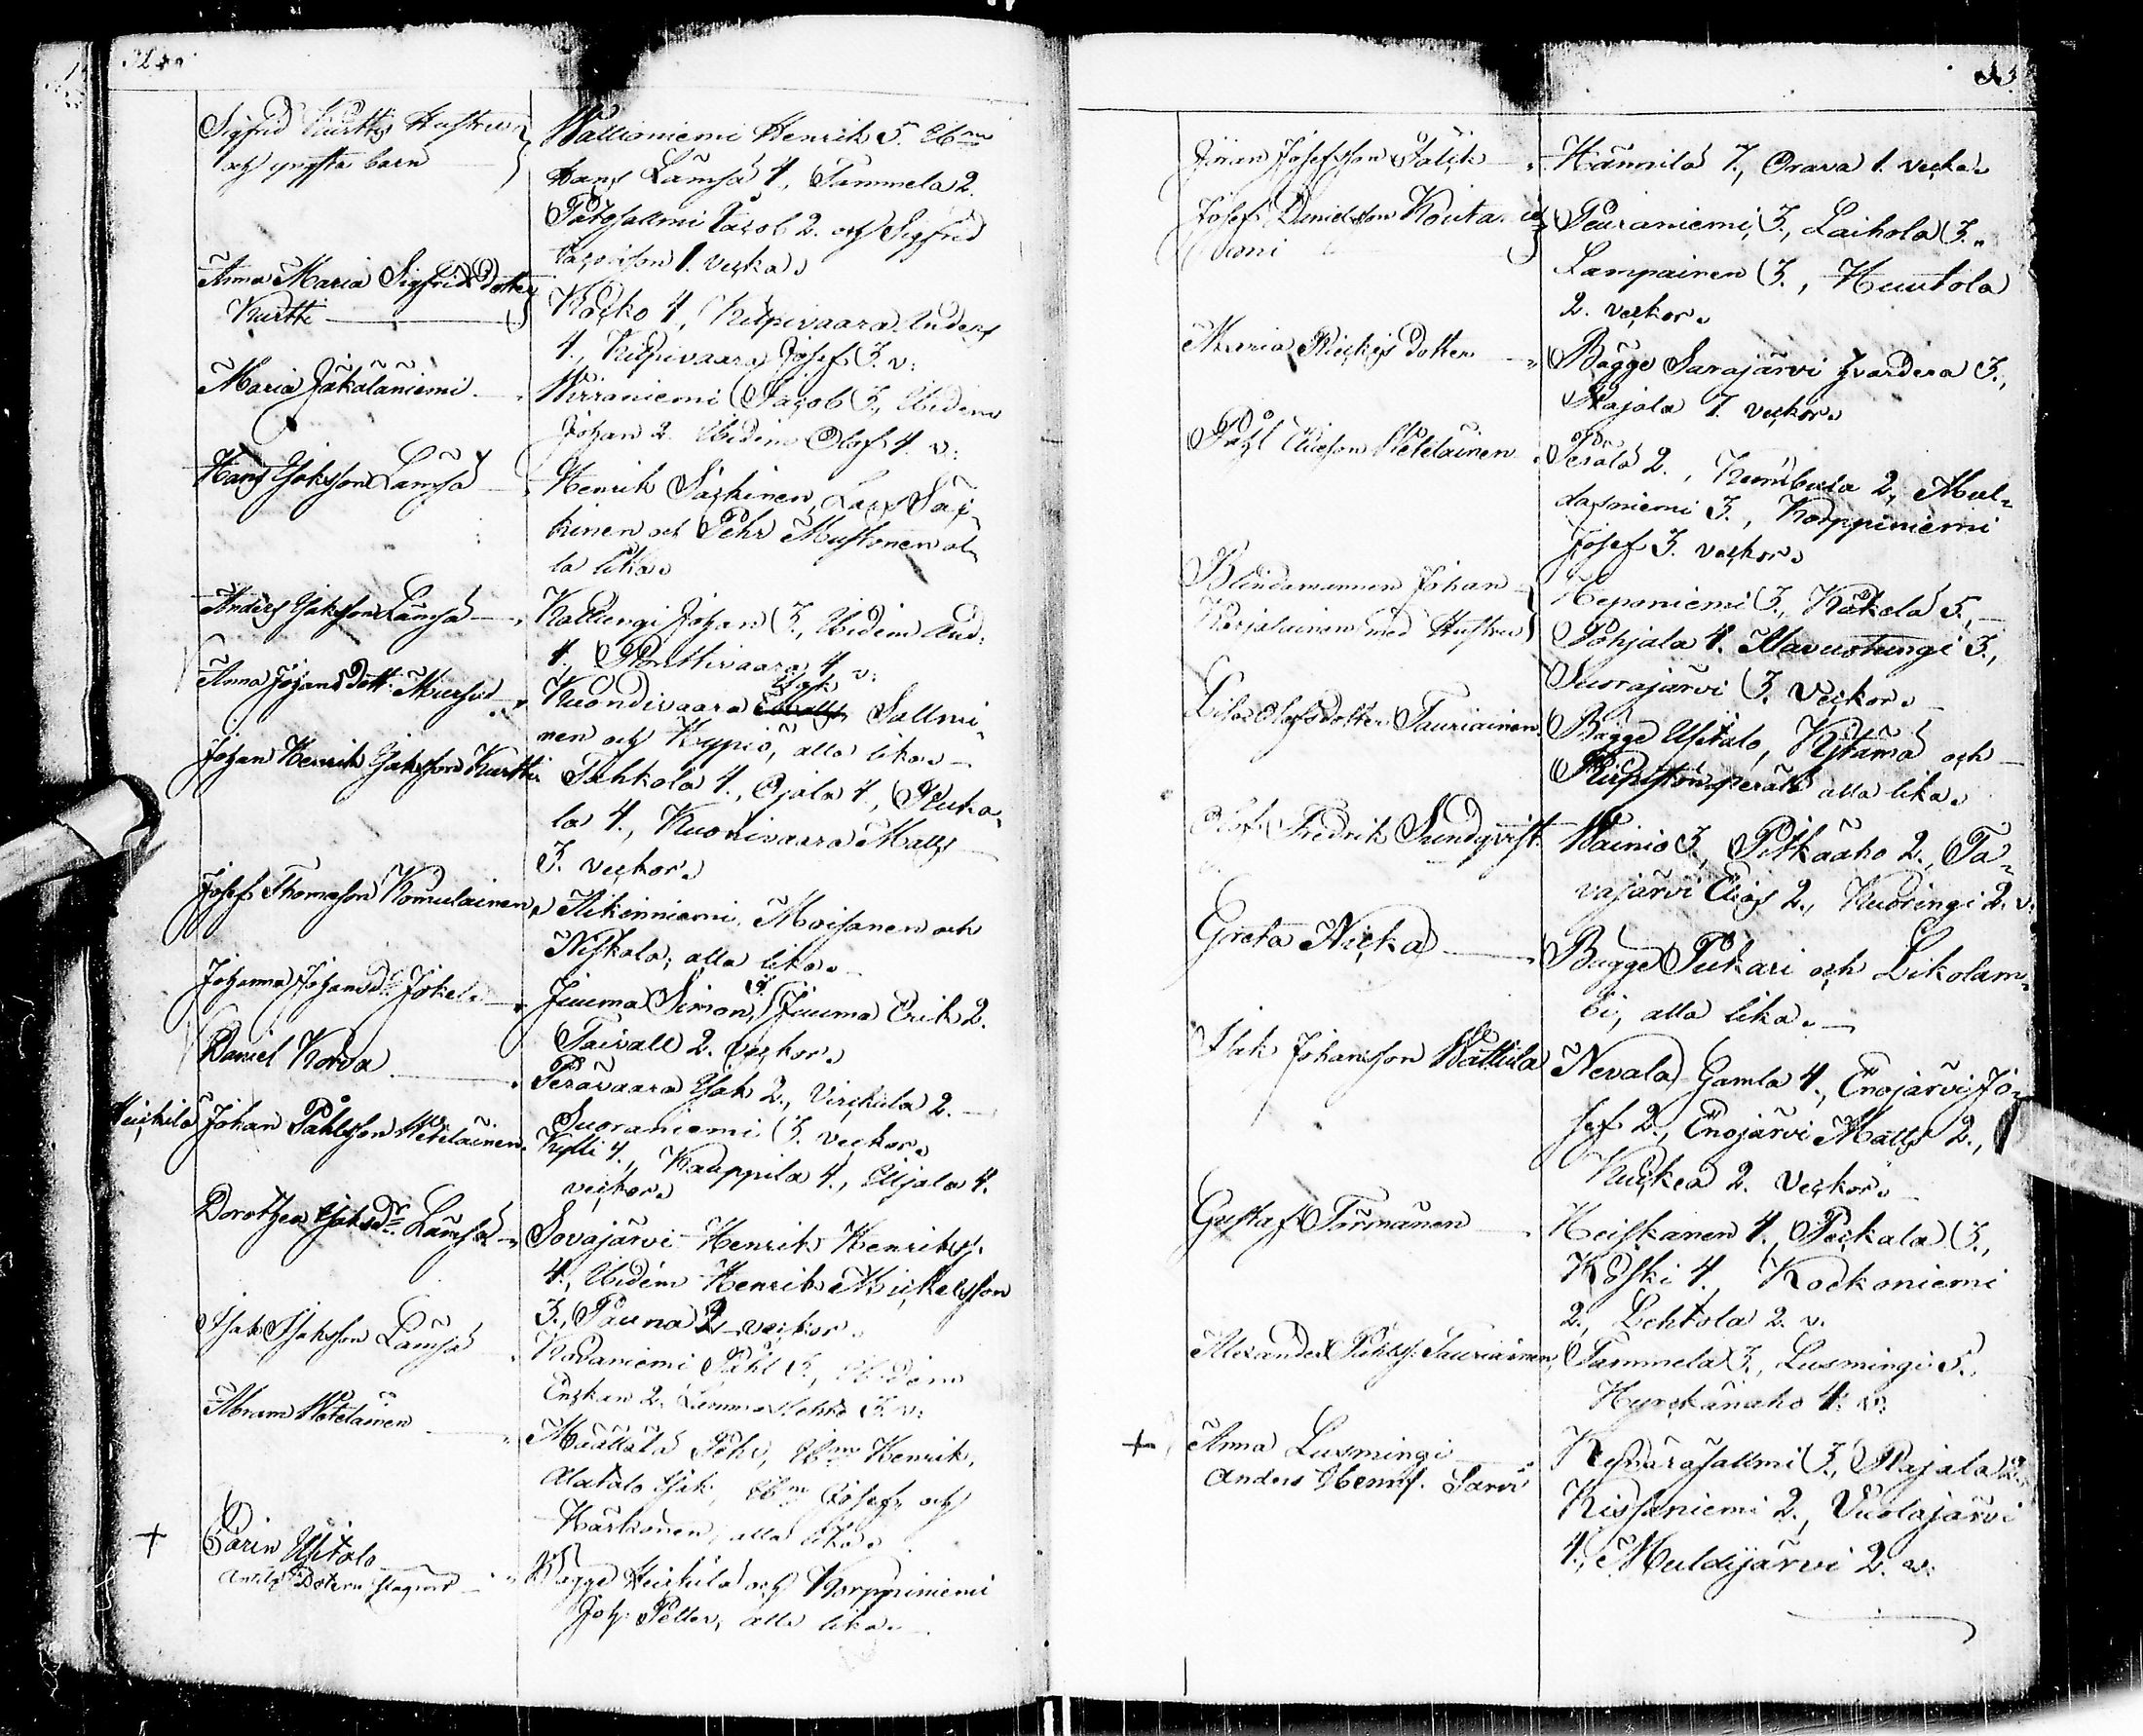 Sigfrid Kurttis Hustru
och yngsta barn
Wallioniemi Henrik 5. Ibm
Hans Lämsä 4, Tammela 2.
Patosallmi Jacob 2. och Sigfrid
Jacobsson 1. vecka.
Anna Maria Sigfrids Dotter
Kurtti
Kocko 4, Kilpivaara Anders
4., Kilpivaara Josef 3. v:
Maria Jäkäläniemi
Wirraniemi Jacob 3., Ibidem
Johan 2. Ibidem Olof 4. v:
Hans Isaksson Lämsä
Henrik Säckinen, Lars Säc-
kinen och Pehr Mustonen al-
la lika.
Anders Isaksson Lämsä
Kallungi Johan 3., Ibidem And:
4., Penttivaara 4 v:
Anna Johans Dott:
Kuondivaara Isak Sallmi
nen och Kypiö, alla lika.
Johan Henrik Isaksson Kurtti
Tahkola 4., Ojala 4., Ruka-
la 4., Kuonivaara Matts
3. veckor.
Josef Thomasson Komulainen
Aikinniemi, Moisanen och
Niskala, alla lika.
Johanna Johans dr Jokela
Juuma Simon 3. Juuma Erik 2.
Taivall 2. veckor.
Daniel Korva
Perävaara Isak 2., Virckula 2.
Suoraniemi 3. veckor.
Heickilä Johan Påhlsson Määttäinen
Kylli 4., Kauppila 4., Illjala 4.
veckor.
Dorothea Isaks Dr Lämsä
Sovajärvi Henrik Henrikss.
4., Ibidem Henrik Mickelsson
3., Pauna 2 veckor.
Isak Isaksson Lämsä
Kovaniemi Påhl 5., Ibidem
Enckan 2, 3. v:
Abram Määttäinen
Määttälä Pehr, Ibm Henrik,
Alatalo Isak, Ibm Josef, och
Härkönen, alla lika.
+ Carin Ylitalo
Bägge Heickilä och Korppiniemi
Joh: Petter, alla lika.
33.
Göran Josefsson
Hannila 7., Orava 1. vecka.
Josef Danielsson Kouta-
niemi
Peuraniemi, 3., Laihola 3.
Lampainen 3., Huutola
2. veckor.
Maria Mickels dotter
Bägge Sarajärvi hvardera 3.,
Rajala 7. veckor.
Påhl Ericsson Määttäinen
Perälä 2., Kuni 2, Mul-
daniemi 3., Korppiniemi
Josef 3. veckor.
Blindamannen Johan
Karjalainen med Hustru
Heponiemi 3., Käkelä 5.,
Pohjala 4. Mavuotungi 3.,
Suorajärvi 3. veckor.
Lisa Olofsdotter Tauriainen
Bägge Ylitalo, Kytämä och
alla lika.
Olof Fredrik Sundqvist.
Wainio 3., Pitkäaho 2., Ta-
vajärvi Elias 2., Kuoringi 2. v.
Greta Nicka
Bägge Pukari och Likolam-
bi, alla lika.
Isak Johansson Wattula
Nevala Gamla 4., Enojärvi Jo-
sef 2., Enojärvi Matts 2.,
Kuckea 2. Veckor.
Gustaf Törmänen
Heiskanen 4., Peckala 3.,
Koski 4., Kockoniemi
2., Lehtola 2. v.
Alexander Påhlss: Tauriainen
Tammela 3., Lusmingi 5.,
Hyrckänaho 4. v:
+ Anna Lusmingi
Anders Henrs. Särvi
3., Rajala 2.,
Kissaniemi 2., Vuolajärvi
4., Muldijärvi 2. v.